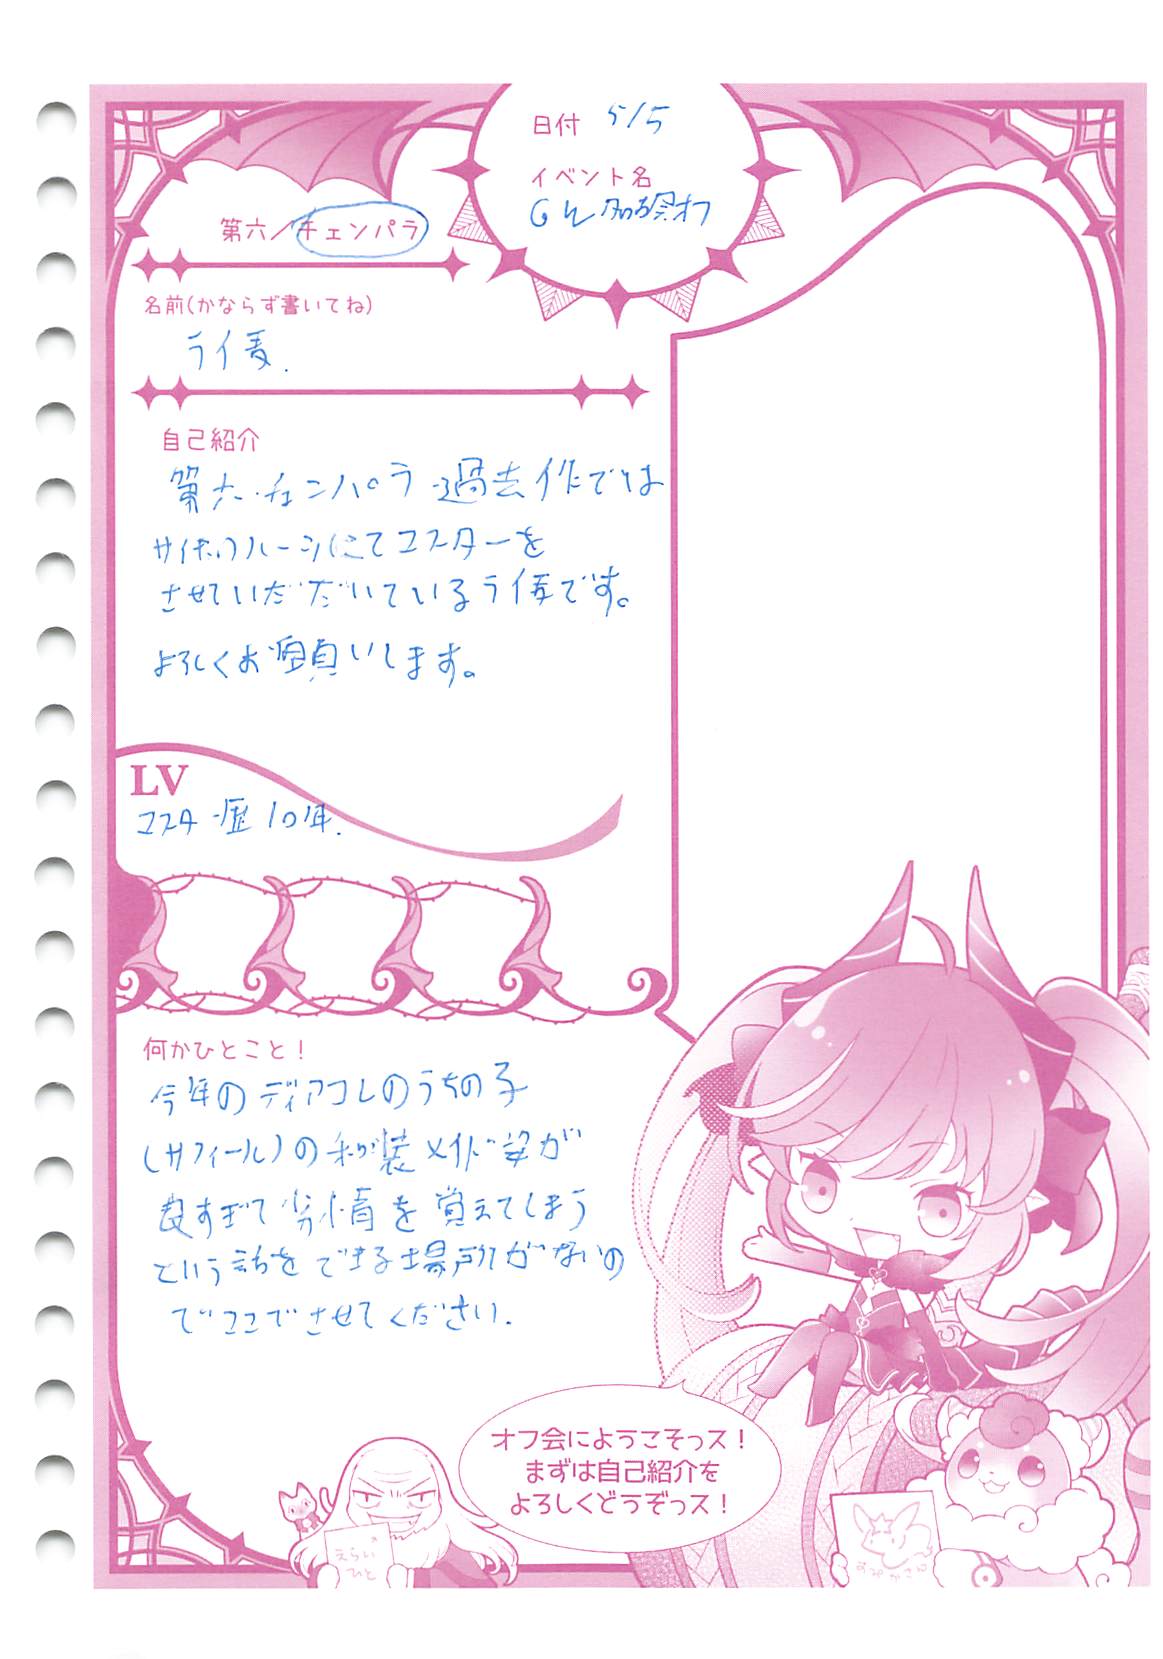 日付 5/5
イベント名
GW 勉強オフ
第六／チェンパラ
名前(かならず書いてね)
ライ麦.
自己紹介
第六・チェンパラ・過去作では
サイキックハーツにてマスターを
させていただだいているライ麦です。
よろしくお願いします。
LV
マスター歴10年.
何かひとこと！
今年のディアコレのうちの子
(サフィール)の和装メイド姿が
良すぎて劣情を覚えてしまう
という話をできる場所がないの
でここでさせてください.
オフ会にようこそっス！
まずは自己紹介を
よろしくどうぞっス！
えらい
ひと